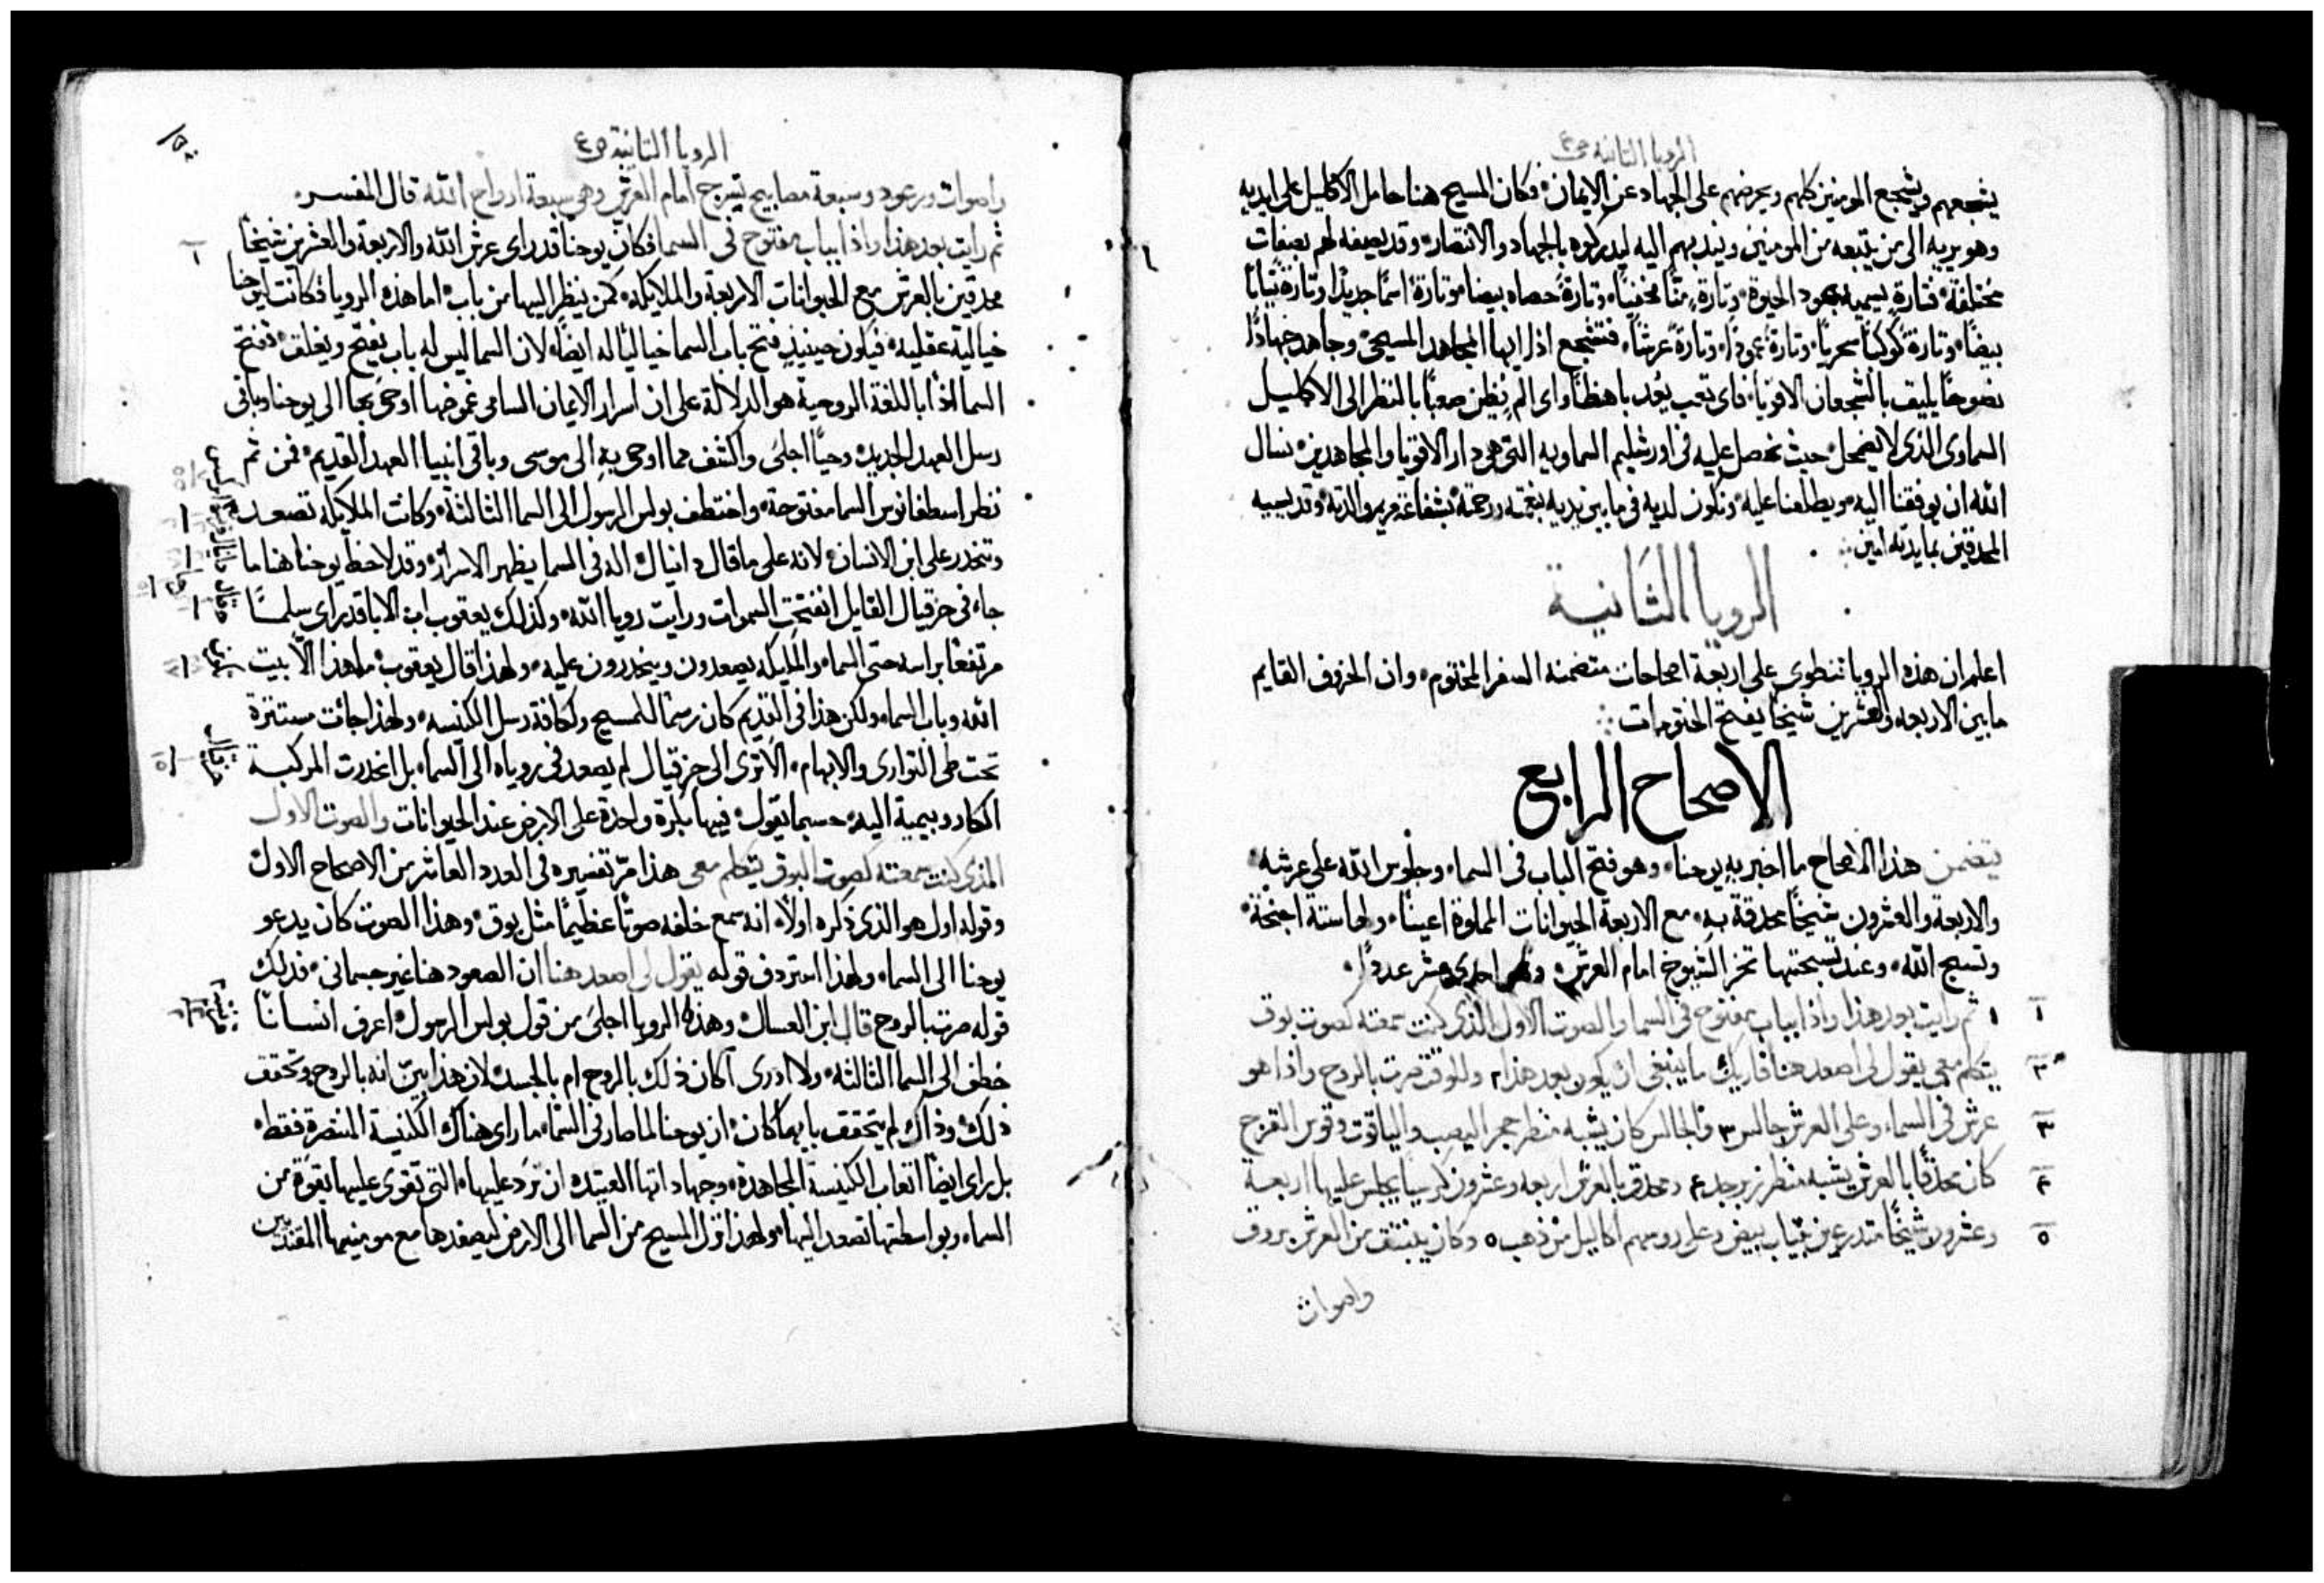 الرويا الثانية ص٤
يشجعهم ويشجع المومنين كلهم ويحرضهم على الجهاد عن الايمان فكان المسيح هنا حامل الاكليل على ايديه
وهو يريه الى من يتبعه من المومنين ويندبهم اليه ليدركوه بالجهاد والانتصار وقد يصفه لهم بصفاتٍ
مختلفة فتارة يسميه بعود الحيوة وتارة منًّا مخفيًا وتارةً حصاه بيضا وتارةً اسمًا جديدًا وتارة ثيابًا
بيضًا وتارة كوكبًا سحريًا وتارة عمودًا وتارةً عرشًا فتشجع اذا ايها المجاهد المسيحي وجاهد جهادًا
نصوحًا يليق بالشجعان الاقويا فاى تعب يُعد باهظًا واى الم يُظن صعبًا بالنظر الى الاكليل
السماوى الذى لا يضمحل حيث تحصل عليه فى اورشليم السماويه التى هى دار الاقويا والمجاهدين نسال
الله ان يوفقنا اليه ويطلعنا عليه ونكون لديه فى ما بين يديه بنعمته ورحمته بشفاعة مريم والدته وقديسيه
المحدقين بمايدته امين
الرويا الثانية
اعلم ان هذه الرويا تنطوى على اربعة اصحاحات متضمنه السفر المختوم وان الخروف القايم
ما بين الاربعه والعشرين شيخًا يفتح الختومات
الاصحاح الرابع
يتضمن هذا الاصحاح ما اخبر به يوحنا وهو فتح الباب فى السما وجلوس الله على عرشه
والاربعة والعشرون شيخًا محدقة به مع الاربعة الحيوانات المملوة اعينًا ولها ستة اجنحة
وتسبح الله وعند تسبحتها تخر الشيوخ امام العرش وهى احدى عشر عددًا
١ ثم رايت بعد هذا واذا بباب مفتوح فى السما والصوت الاول الذى كنت سمعته كصوت بوق
يتكلم معى يقول لى اصعد هنا فاريك ما ينبغى ان يكون بعد هذا ٢ وللوقت صرت بالروح واذا هو
عرش فى السما وعلى العرش جالس ٣ والجالس كان يشبه منظر حجر اليصب والياقوت وقوس القزح
كان محدقًا بالعرش يشبه منظر زبرجد ٤ ومحدق بالعرش اربعه وعشرون كرسيا يجلس عليها اربعة
وعشرون شيخًا متدرعين بثياب بيض وعلى روسهم اكاليل من ذهب ٥ وكان ينبثق من العرش بروق
واصوات
الرويا الثانية ص٤
واصوات ورعود وسبعة مصابيح تسرج امام العرش وهى سبعة ارواح الله قال المفسر
ثم رايت بعد هذا واذا بباب مفتوح فى السما فكان يوحنا قد راى عرش الله والاربعة والعشرين شيخًا
محدقين بالعرش مع الحيوانات الاربعة والملايكه كمن ينظر اليها من باب اما هذه الرويا فكانت ليوحنا
خيالية عقليه فيكون حينيذٍ فتح باب السما خياليًا له ايضًا لان السما ليس له باب يفتح ويغلق ففتح
السما اذًا باللغة الروحية هو الدلالة على ان اسرار الايمان السامى غموضها اوحى بها الى يوحنا وباقى
رسل العهد الجديد وحيًا اجلى واكشف مما اوحى به الى موسى وباقى انبيا العهد القديم فمن ثم
نظر اسطفانوس السما مفتوحة واختطف بولس الرسول الى السما الثالثة وكانت الملايكه تصعد
وتنحدر على ابن الانسان لانه على ما قال دانيال الله فى السما يظهر الاسرار وقد لاحظ يوحنا هنا ما
جاء فى حزقيال القايل انفتحت السموات ورايت رويا الله وكذلك يعقوب اب الابا قد راى سلمًا
مرتفعًا براسه حتى السما والملايكه يصعدون وينحدرون عليه ولهذا قال يعقوب ما هذا الا بيت
الله وباب السما ولكن هذا فى القديم كان رسمًا للمسيح ولكافة رسل الكنيسه ولهذا جائت مستترة
تحت طى التوارى والابهام الا ترى الى حزقيال لم يصعد فى روياه الى السما بل انحدرت المركبة
الكاروبيمية اليه حسبما يقول فيها بكرة واحدة على الارض عند الحيوانات والصوت الاول
الذى كنت سمعته كصوت البوق يتكلم معى هذا مرّ تفسيره فى العدد العاشر من الاصحاح الاول
وقوله اول هو الذى ذكره اولًا انه سمع خلفه صوتًا عظيمًا مثل بوق وهذا الصوت كان يدعو
يوحنا الى السما ولهذا استردف قوله يقول لى اصعد هنا ان الصعود هنا غير جسمانى فذلك
قوله صرت بالروح قال ابن العسال وهذه الرويا اجلى من قول بولس الرسول اعرف انسانًا
خطف الى السما الثالثه ولا ادرى اكان ذلك بالروح ام بالجسد لان هذا بين انه بالروح وتحقق
ذلك وذاك لم يتحقق بايهما كان ان يوحنا لما صار فى السما ما راى هناك الكنيسة المنتصرة فقط
بل راى ايضًا اتعاب الكنيسة المجاهدة وجهاداتها العتيده ان ترد عليها التى تقوى عليها بقوة من
السما وبواسطتها تصعد اليها ولهذا نزل المسيح من السما الى الارض ليصعدها مع مومنيها المقتدين